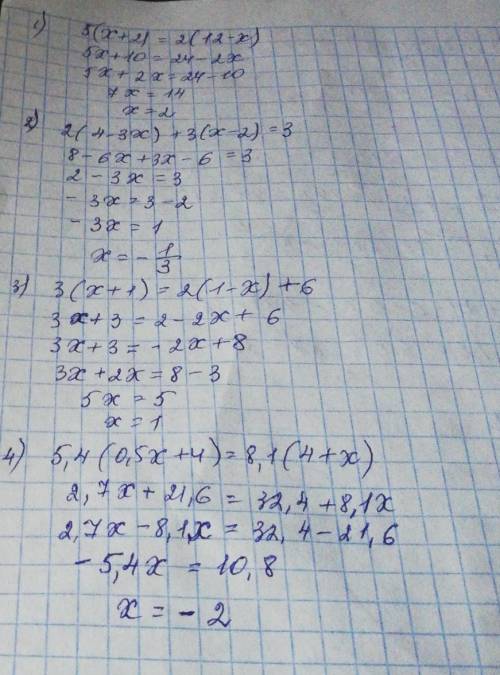 1) 5(x+2) = 2(12-x)
5x+10 = 24-2x
5x+2x=24-10
7x = 14
x=2
2) 2(4-3x) + 3(x-2) = 3
8-6x+3x-6 = 3
2-3x = 3
-3x = 3-2
-3x = 1
x = -1/3
3) 3(x+1) = 2(1-x) + 6
3x+3 = 2-2x+ 6
3x+3 = -2x+8
3x+2x = 8-3
5x = 5
x = 1
4) 5,4(0,5x+4) = 8,1(4+x)
2,7x + 21,6 = 32,4+8,1x
2,7x - 8,1x = 32,4-21,6
-5,4x = 10,8
x = -2